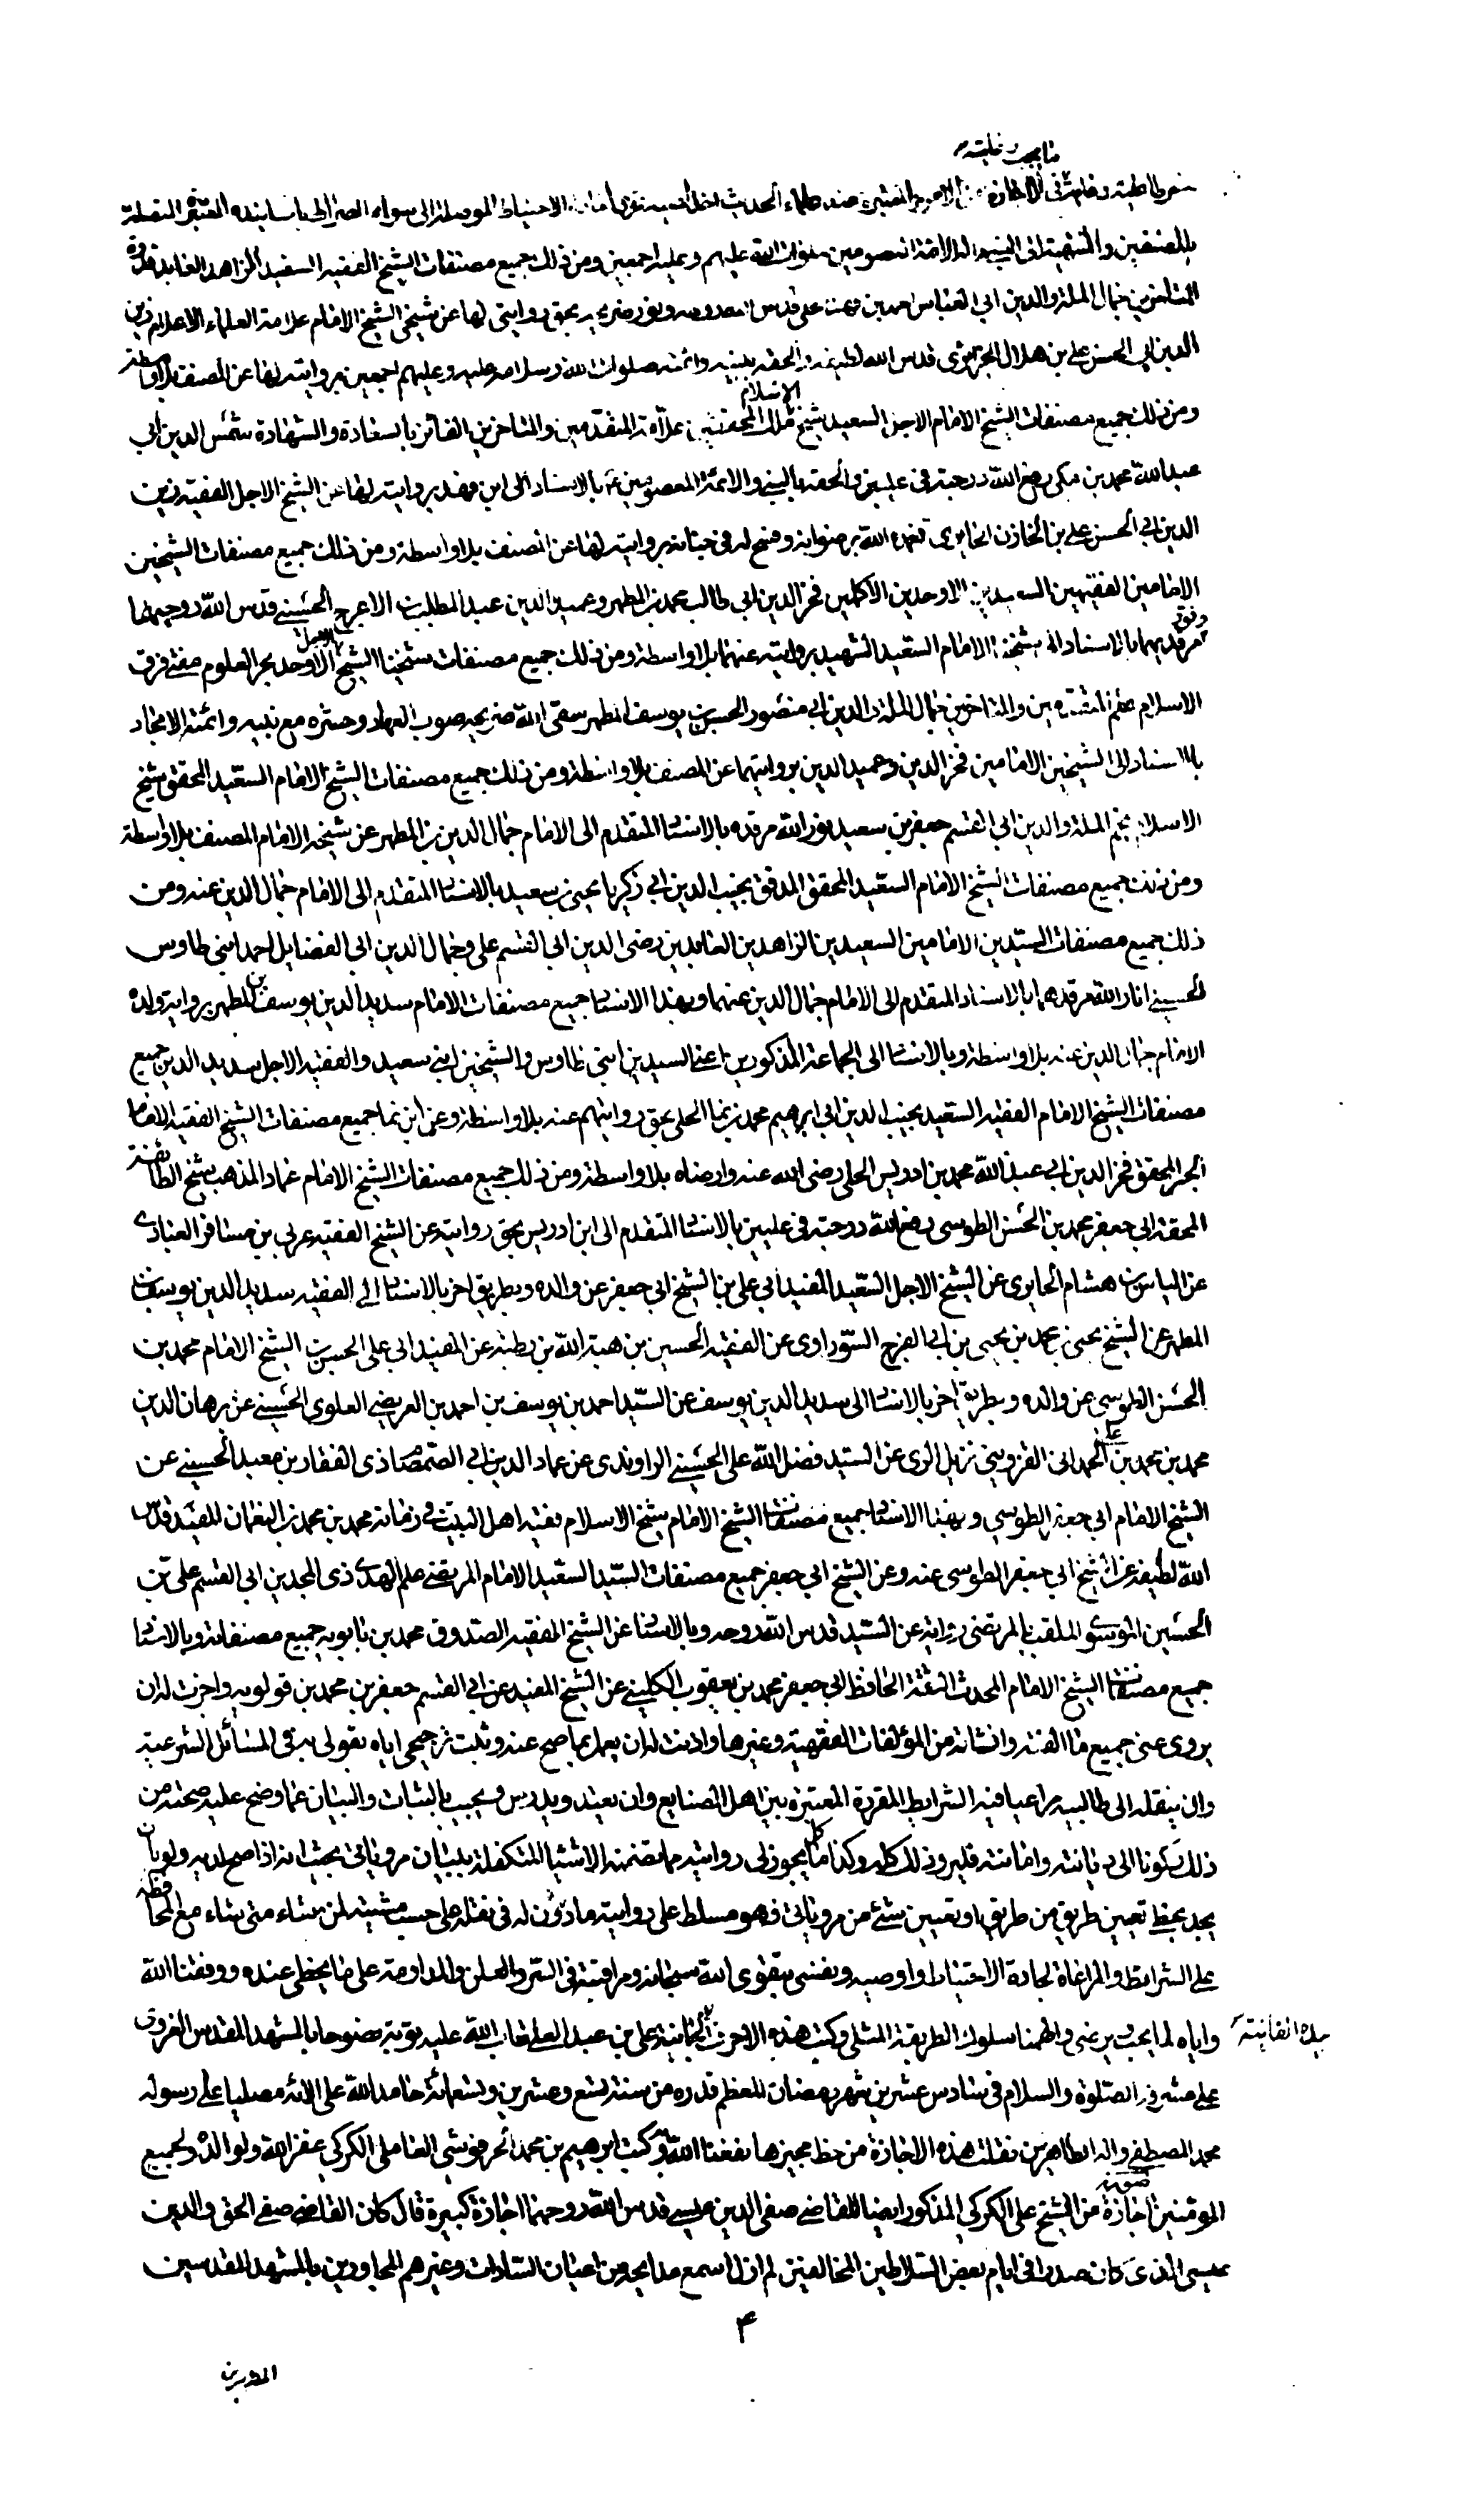 بالمصنفين والمنتهية الى النبي والائمة المعصومين صلوات الله عليهم وعليه اجمعين ومن ذلك جميع مصنفات الشيخ الفقيه السعيد الزاهد العابد قدوة
المتاخرين جمال الملة والدين ابي العباس احمد بن فهد قدس الله روحه ونور ضريحه بحق روايتي لها عن شيخي الشيخ الامام علامة العلماء الاعلام زين
الدين ابي الحسن علي بن هلال الجزايري قدس الله لطيفه والحقه بنبيه وائمته صلوات الله وسلامه عليه وعليهم اجمعين بروايته لها عن المصنف بلا واسطة
الاسلام
ومن ذلك جميع مصنفات الشيخ الامام الاجل السعيد شيخ ملك المحققين علامة المتقدمين والمتاخرين الفائز بالسعادة والشهادة شمس الدين ابي
عبد الله محمد بن مكي رفع الله درجته في عليين والحقه بالنبي والائمة المعصومين بالاسناد الى ابن فهد بروايته لها عن الشيخ الاجل الفقيه زين
الدين ابي الحسن علي بن الخازن الحايري تغمده الله برضوانه وفسح له في جنانه بروايته لها عن المصنف بلا واسطة ومن ذلك جميع مصنفات الشيخين
الامامين الفقيهين السعيدين الاوحدين الاكملين فخر الدين ابي طالب محمد بن المطهر وعميد الدين عبد المطلب بن الاعرج الحسيني قدس الله روحيهما
ونور
مرقديهما بالاسناد الى شيخنا الامام السعيد الشهيد بروايته عنهما بلا واسطة ومن ذلك جميع مصنفات شيخنا الشيخ الاوحد بحر العلوم مفتي فرق
الاسلام المتقدمين والمتاخرين جمال الملة والدين ابي منصور الحسن بن يوسف المطهر سقى الله ضريحه صوب العهاد وحشره مع نبيه وائمته الامجاد
بالاسناد الى الشيخين الامامين فخر الدين وعميد الدين بروايتهما عن المصنف بلا واسطة ومن ذلك جميع مصنفات الشيخ الامام السعيد المحقق شيخ
الاسلام نجم الملة والدين ابي القسم جعفر بن سعيد نور الله مرقده بالاسناد المتقدم الى الامام جمال الدين بن المطهر عن شيخه الامام المصنف بلا واسطة
ومن ذلك جميع مصنفات الشيخ الامام السعيد المحقق المدقق نجيب الدين ابي زكريا يحيى بن سعيد بالاسناد المتقدم الى الامام جمال الدين عنه ومن
ذلك جميع مصنفات السيدين الامامين السعيدين الزاهدين العابدين رضي الدين ابي القسم علي وجمال الدين ابي الفضايل احمد ابني طاوس
الحسيني انار الله مرقدهما بالاسناد المتقدم الى الامام جمال الدين عنهما وبهذا الاسناد جميع مصنفات الامام سديد الدين يوسف بن المطهر برواية ولده
الامام جمال الدين عنه بلا واسطة وبالاسناد الى الجماعة المذكورين اعني السيدين ابني طاوس والشيخين ابني سعيد والفقيه الاجل سديد الدين جميع
مصنفات الشيخ الامام الفقيه السعيد نجيب الدين ابي ابرهيم محمد بن نما الحلي بحق روايتهم عنه بلا واسطة وعن ابن نما جميع مصنفات الشيخ الفقيه الامام
الحبر المحقق فخر الدين ابي عبد الله محمد بن ادريس الحلي رضي الله عنه وارضاه بلا واسطة ومن ذلك جميع مصنفات الشيخ الامام عماد المذهب شيخ الطائفة
المحقة ابي جعفر محمد بن الحسن الطوسي رفع الله درجته في عليين بالاسناد المتقدم الى ابن ادريس بحق روايته عن الشيخ الفقيه عربي بن مسافر العبادي
عن الياس بن هشام الحايري عن الشيخ الاجل السعيد المفيد ابي علي بن الشيخ ابي جعفر عن والده وبطريق اخر بالاسناد الى الفقيه سديد الدين يوسف بن
المطهر عن الشيخ يحيى بن محمد بن يحيى بن ابي الفرج السوراوي عن الفقيه الحسين بن هبة الله بن رطبة عن المفيد ابي علي الحسن بن الشيخ الامام محمد بن
الحسن الطوسي عن والده وبطريق اخر بالاسناد الى سديد الدين يوسف عن السيد احمد بن يوسف بن احمد بن العريضي العلوي الحسيني عن برهان الدين
محمد بن محمد بن علي الحمداني القزويني نزيل الري عن السيد فضل الله علي الحسيني الراوندي عن عماد الدين ابي الصمصام ذي الفقار بن معبد الحسيني عن
الشيخ الامام ابي جعفر الطوسي وبهذا الاسناد جميع مصنفات الشيخ الامام شيخ الاسلام فقيه اهل البيت في زمانه محمد بن محمد بن النعمان المفيد قدس
الله لطيفه عن الشيخ ابي جعفر الطوسي عنه وعن الشيخ ابي جعفر جميع مصنفات السيد السعيد الامام المرتضى علم الهدى ذي المجدين ابي القسم علي بن
الحسين الموسوي الملقب بالمرتضى روايته عن السيد قدس الله روحه وبالاسناد عن الشيخ الفقيه الصدوق محمد بن بابويه جميع مصنفاته وبالاسناد
جميع مصنفات الشيخ الامام المحدث الثقة الحافظ ابي جعفر محمد بن يعقوب الكليني عن الشيخ المفيد عن ابي القسم جعفر بن محمد بن قولويه واجزت له ان
يروي عني جميع ما الفته وانشاته من المؤلفات الفقهية وغيرها واذنت له ان يعمل بما صح عنده وثبت ترجيحي اياه بقولي به في المسائل الشرعية
وان ينقله الى طالبيه مراعيا فيه الشرايط المقررة المعتبرة بين اهل الصنايع وان يفيد ويدرس ويجيب بالثبات والبيان عما وضح عليه صحته من
ذلك ركونا الى ديانته وامانته فليرو ذلك كله وكذا كل ما يجوز لي روايته مما تضمنه الاثبات المتكفلة ببيان مروياتي بحيث انه اذا صح لديه ولو بان
يجد بخطي تعيين طريق من طريق او تعيين شئ من مروياتي فهو مسلط على روايته ماذون له في نقله على حسب مشيته لمن شاء متى شاء مع المحافظة
على الشرايط والمراعاة لجادة الاحتياط واوصيه ونفسي بتقوى الله سبحانه ومراقبته في السر والعلن والمداومة على ما يحظي عنده ووفقنا الله
واياه لما يحب ويرضى والهمنا سلوك الطريقة المثلى وكتب هذه الاحرف بيده الفانية الجانية علي بن عبد العالي تاب الله عليه توبة نصوحا بالمشهد المقدس الغروي
على مشرفه الصلوة والسلام في سادس عشرين شهر رمضان المعظم قدره من سنة تسع وعشرين وتسعمائة حامدا لله على الائه مصليا على رسوله
محمد المصطفى واله الطاهرين نقلت هذه الاجازة من خط مجيزها نفعنا الله به وكتب ابرهيم بن محمد الحرفوشي العاملي الكركي غفر الله له ولوالديه ولجميع
المؤمنين صورة اجازة من الشيخ علي الكركي المذكور ايضا للقاضي صفي الدين عيسى قدس الله روحهما اجازة كبيرة قال كان القاضي صفي الحق والدين
عيسى الذي كان صدرا في ايام بعض السلاطين المخالفين لم ازل اسمع مدايحه من اعيان السادات وغيرهم المجاورين بالمشهد المقدسين
۴